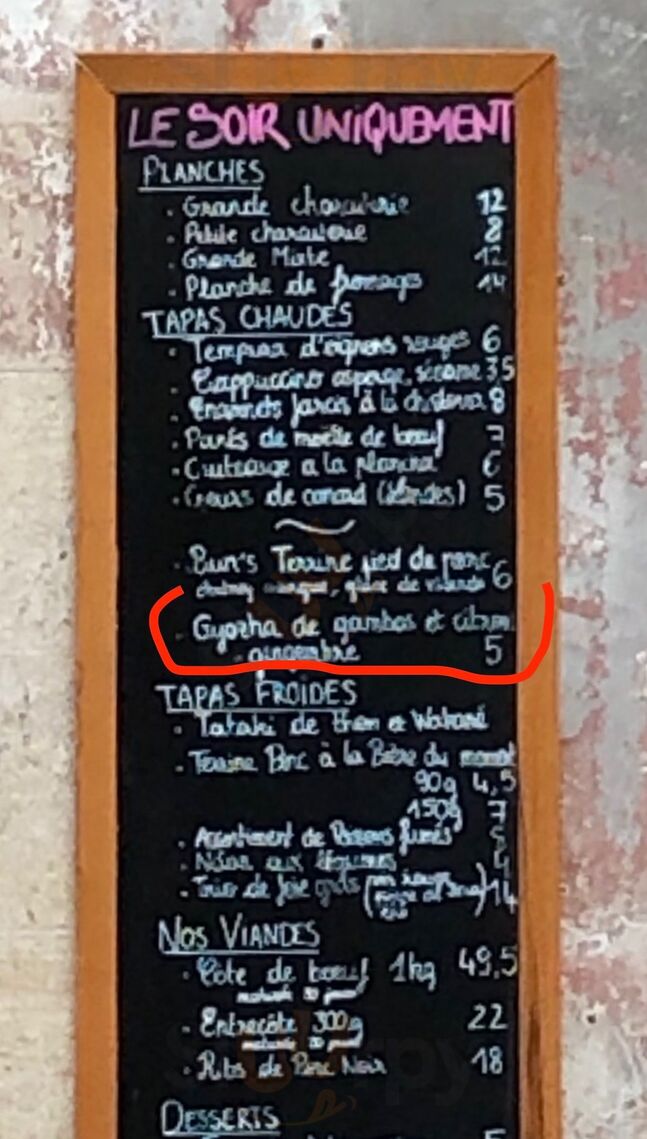 LE SOIR UNIQUEMENT
PLANCHES
. Grande charcuterie 12
. Petite charcuterie 8
. Grande Mixte 12
. Planche de fromages 14
TAPAS CHAUDES
. Tempura d'oignons rouges 6
. Cappuccino asperge, sésame 3.5
. à la chistorra 8
. Panés de moëlle de bœuf 7
. Couteaux a la plancha 6
. Cœurs de canard (landes) 5
. Bun's Terrine pied de porc
chutney mangue, glace de viande 6
. Gyozha de gambas et citron
gingembre 5
TAPAS FROIDES
. Tataki de thon et Wakamé
. Terrine Porc à la Bière du moment
90g 4,5
150g 7
. Assortiment de Poissons fumés 5
. aux légumes 4
. Trio de foie gras ( ) 14
NOS VIANDES
. Côte de bœuf 1kg 49,5
. Entrecôte 300g 22
. Ribs de Porc Noir 18
DESSERTS